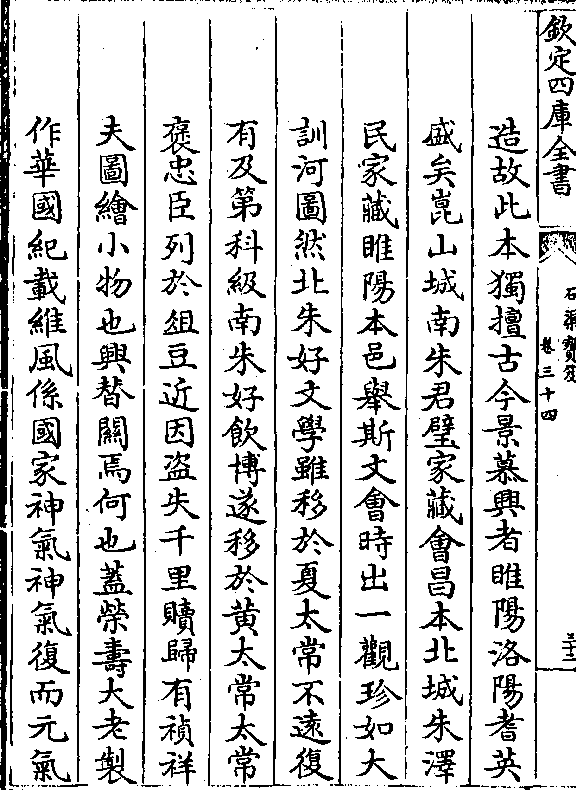 欽定四庫全書
石渠寶笈
卷三十四
三十二
造故此本獨擅古今景慕興者睢陽洛陽耆英
盛矣崑山城南朱君璧家藏會昌本北城朱澤
民家藏睢陽本邑舉斯文會時出一觀珍如大
訓河圖然北朱好文學雖移於夏太常不遠復
有及第科級南朱好飲博遂移於黄太常太常
褒忠臣列於俎豆近因盗失千里贖歸有禎祥
夫圖繪小物也興替關焉何也蓋榮壽大老製
作華國紀載維風係國家神氣神氣復而元氣